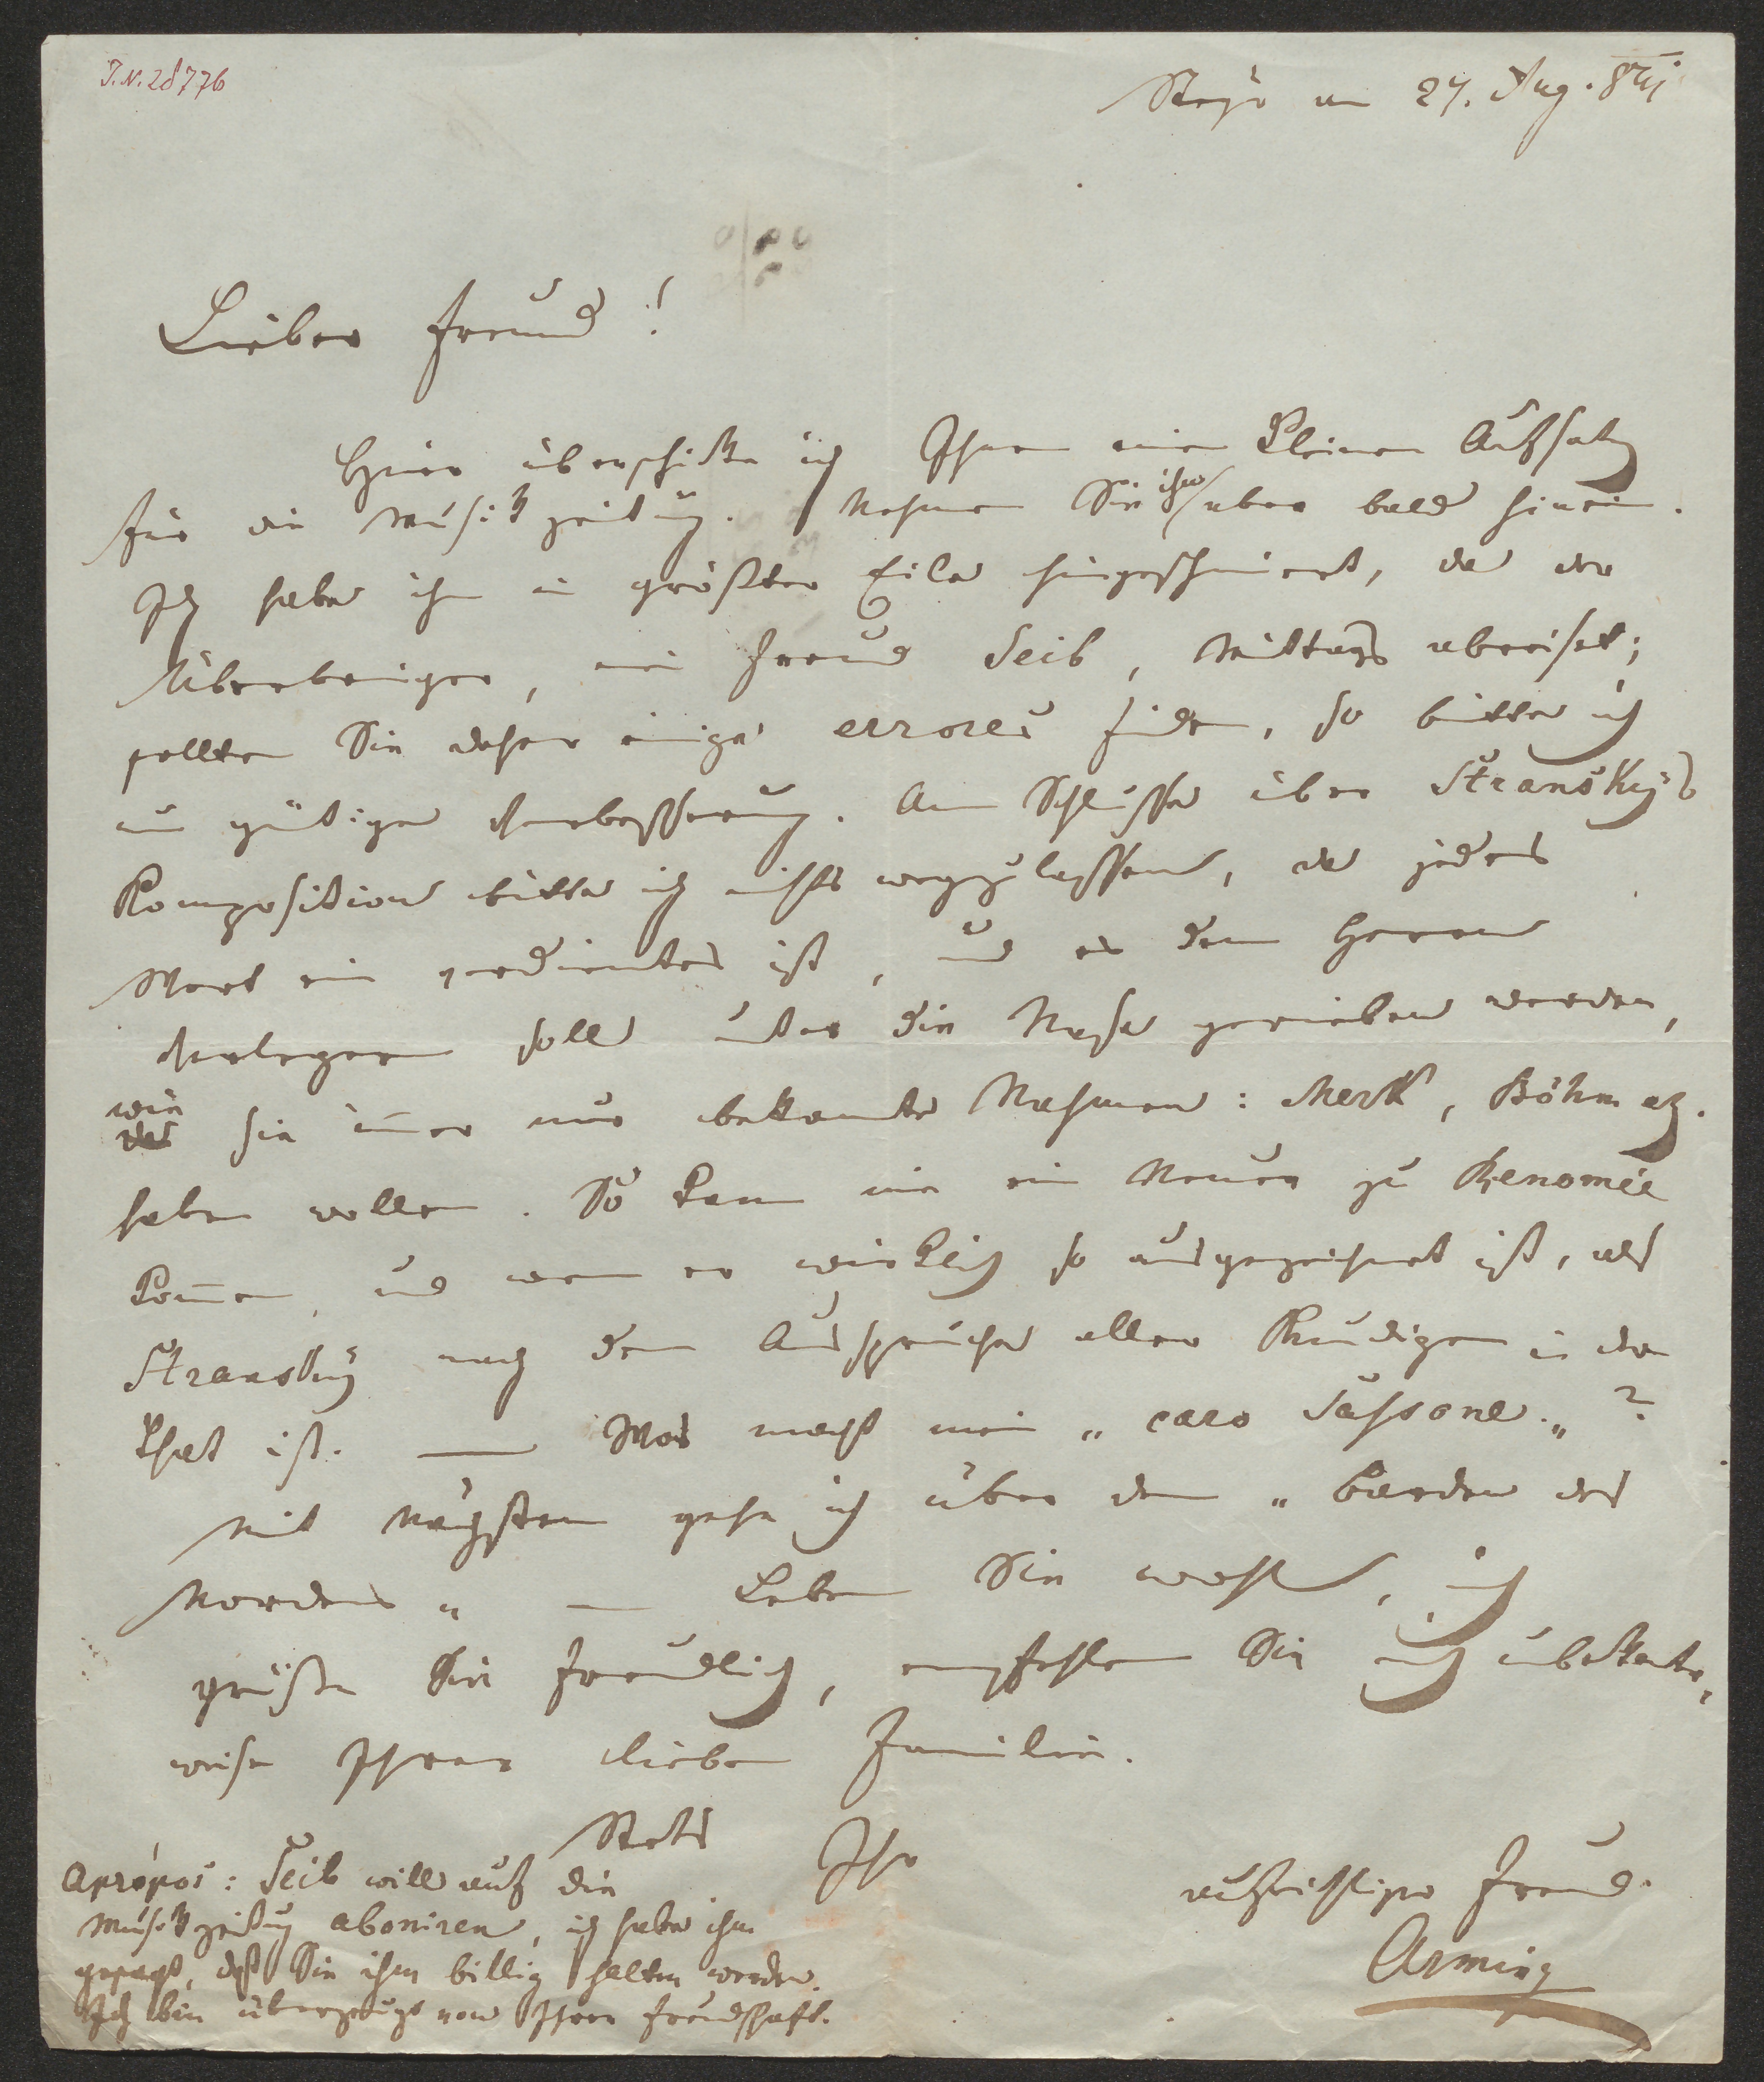 I.N. 28776
Steyr am 27. Aug. 841
Lieber Freund!
Hier überschicke ich Ihnen einen kleinen Aufsatz
für die Musikzeitung. Nehmen Sie ihn aber bald hinein.
Ich habe ihn in größter Eile hingeschmiert, da der
Überbringer, mein Freund Seib, Mittags abreiset;
sollten Sie daher einige errores finden, so bitte ich
um gütige Verbesserung. Am Schlusse über Stransky's
Komposition bitte ich nichts wegzulassen, da jedes
Wort ein verdientes ist, und es den Herren
Verlegern soll unter die Nase gerieben werden,
wie sie im̄er nur bekannte Nahmen: Merk, Böhm etz.
haben wollen. So kann nie ein Neuer zu Renomée
kom̄en, und wenn er wirklich so ausgezeichnet ist, als
Stransky nach dem Ausspruche aller Kundigen in der
That ist. — Was macht mein „caro Sassone„?
Mit Nächstem gehe ich über den „Barden des
Nordens„ — Leben Sie wohl, ich
grüße Sie freundlich, empfehlen Sie mich unbekannter
weise Ihrer lieben Familie.
Stets
Ihr
aufrichtiger Freund
Arming
Apropos: Seib will auf die
Musikzeitung aboniren, ich habe ihm
gesagt, daß Sie ihn billig halten werden.
Ich bin überzeugt von Ihrer Freundschaft.